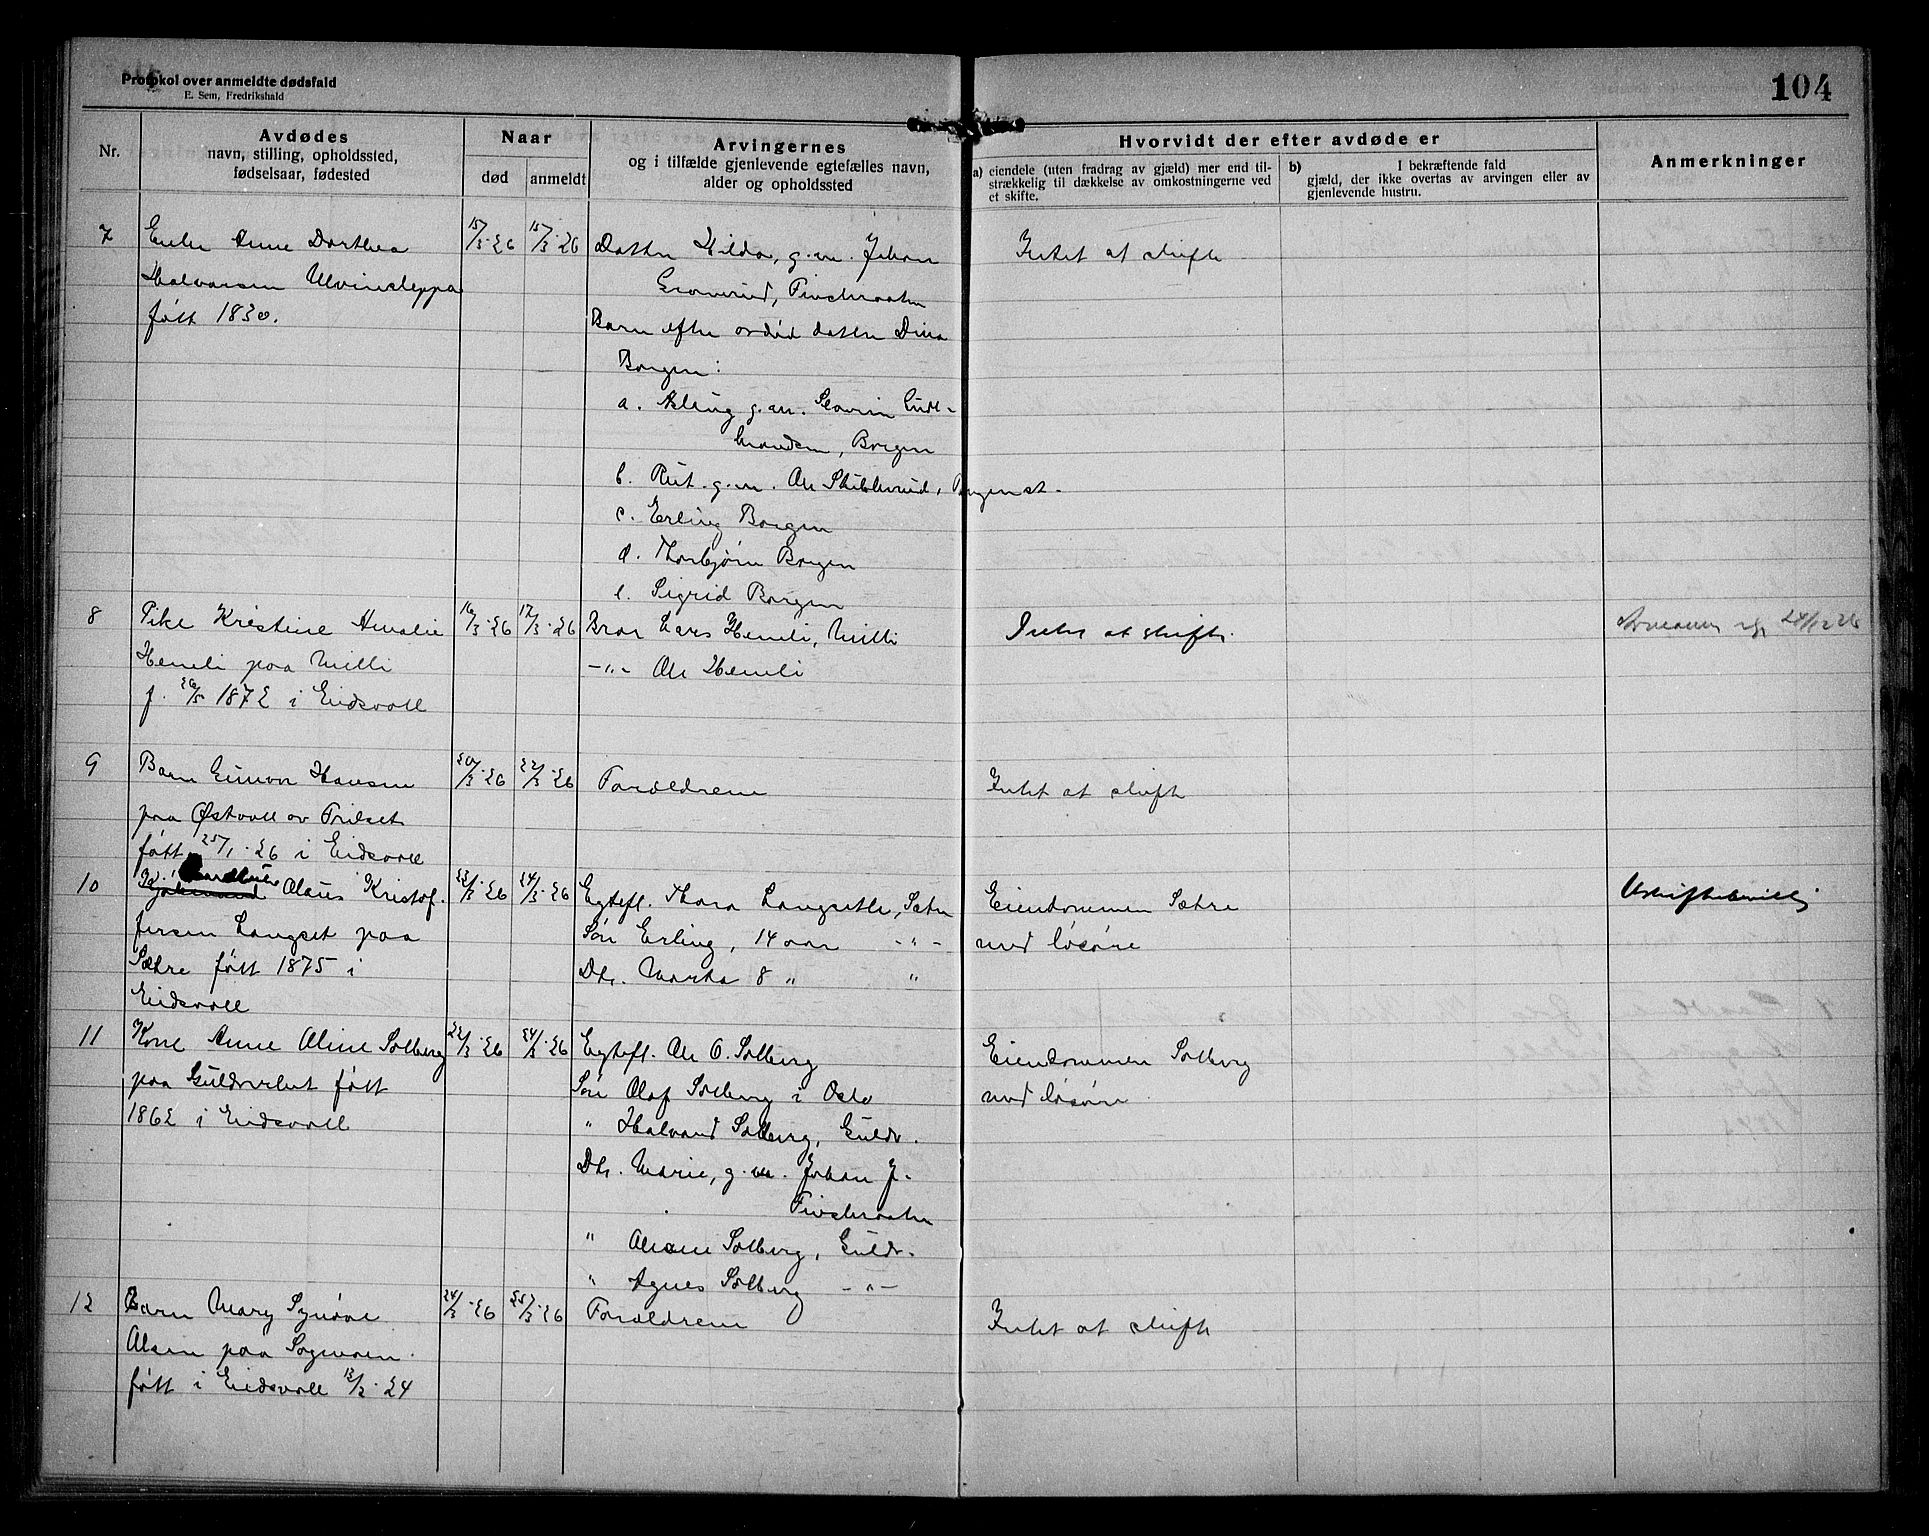 Protokol over anmeldte dødsfald
E. Sem, Fredrikshald
104
Nr.
Avdødes
navn, stilling, opholdssted,
fødselsaar, fødested
Naar
død
anmeldt
Arvingernes
og i tilfælde gjenlevende egtefælles navn,
alder og opholdssted
Hvorvidt der efter avdøde er
a) eiendele (uten fradrag av gjæld) mer end til-
strækkelig til dækkelse av omkostningerne ved
et skifte.
b) I bekræftende fald
gjæld, der ikke overtas av arvingen eller av
gjenlevende hustru.
Anmerkninger
7
Enke Anne Dorthea
Halvorsen Ulvinsleppa
født 1830.
15/3-26
15/3-26
Datter Hilda, g.m. Johan
Granerud, Finstadraaten
Barn efter avdød datter Dina
Borgen:
a. Asling g.m. Severin Gud-
brandsen, Borgen
b. Rut g.m. Ole Stubberud, Borgenst.
c. Erling Borgen
d. Thorbjørn Borgen
e. Sigrid Borgen
Intet at skifte
8
Pike Kristine Amalie
Hemli paa Milli
f. 26/5 1872 i Eidsvoll
16/3-26
17/3-26
Bror Lars Hemli, Milli
-"- Ole Hemli
Intet at skifte.
9
Barn Gunvor Hansen
paa Østvoll av Trilset
født 25/1-26 i Eidsvoll
20/3-26
22/3-26
Forældrene
Intet at skifte
10
Olaus Kristof-
fersen Langset paa
Sætre født 1875 i
Eidsvoll
23/3-26
24/3-26
Egtefl. Thora Langseth, Sætre
Søn Erling, 14 aar -"-
Dtr. Marta 8 " "
Eiendommen Sætre
med løsøre
Uskiftebevilling
11
Kone Anne Oline Solberg
paa Guldverket født
1862 i Eidsvoll
22/3-26
24/3-26
Egtefl. Ole O. Solberg
Søn Olaf Solberg i Oslo
" Halvard Solberg, Guldv.
Dtr. Marie, g.m. Johan J.
Finstadraaten
" Solberg, Guldv.
" Agnes Solberg -"-
Eiendommen Solberg
med løsøre
12
Barn Mary Synøve
Olsen paa
født i Eidsvoll 13/3-24
24/3-26
25/3-26
Forældrene
Intet at skifte